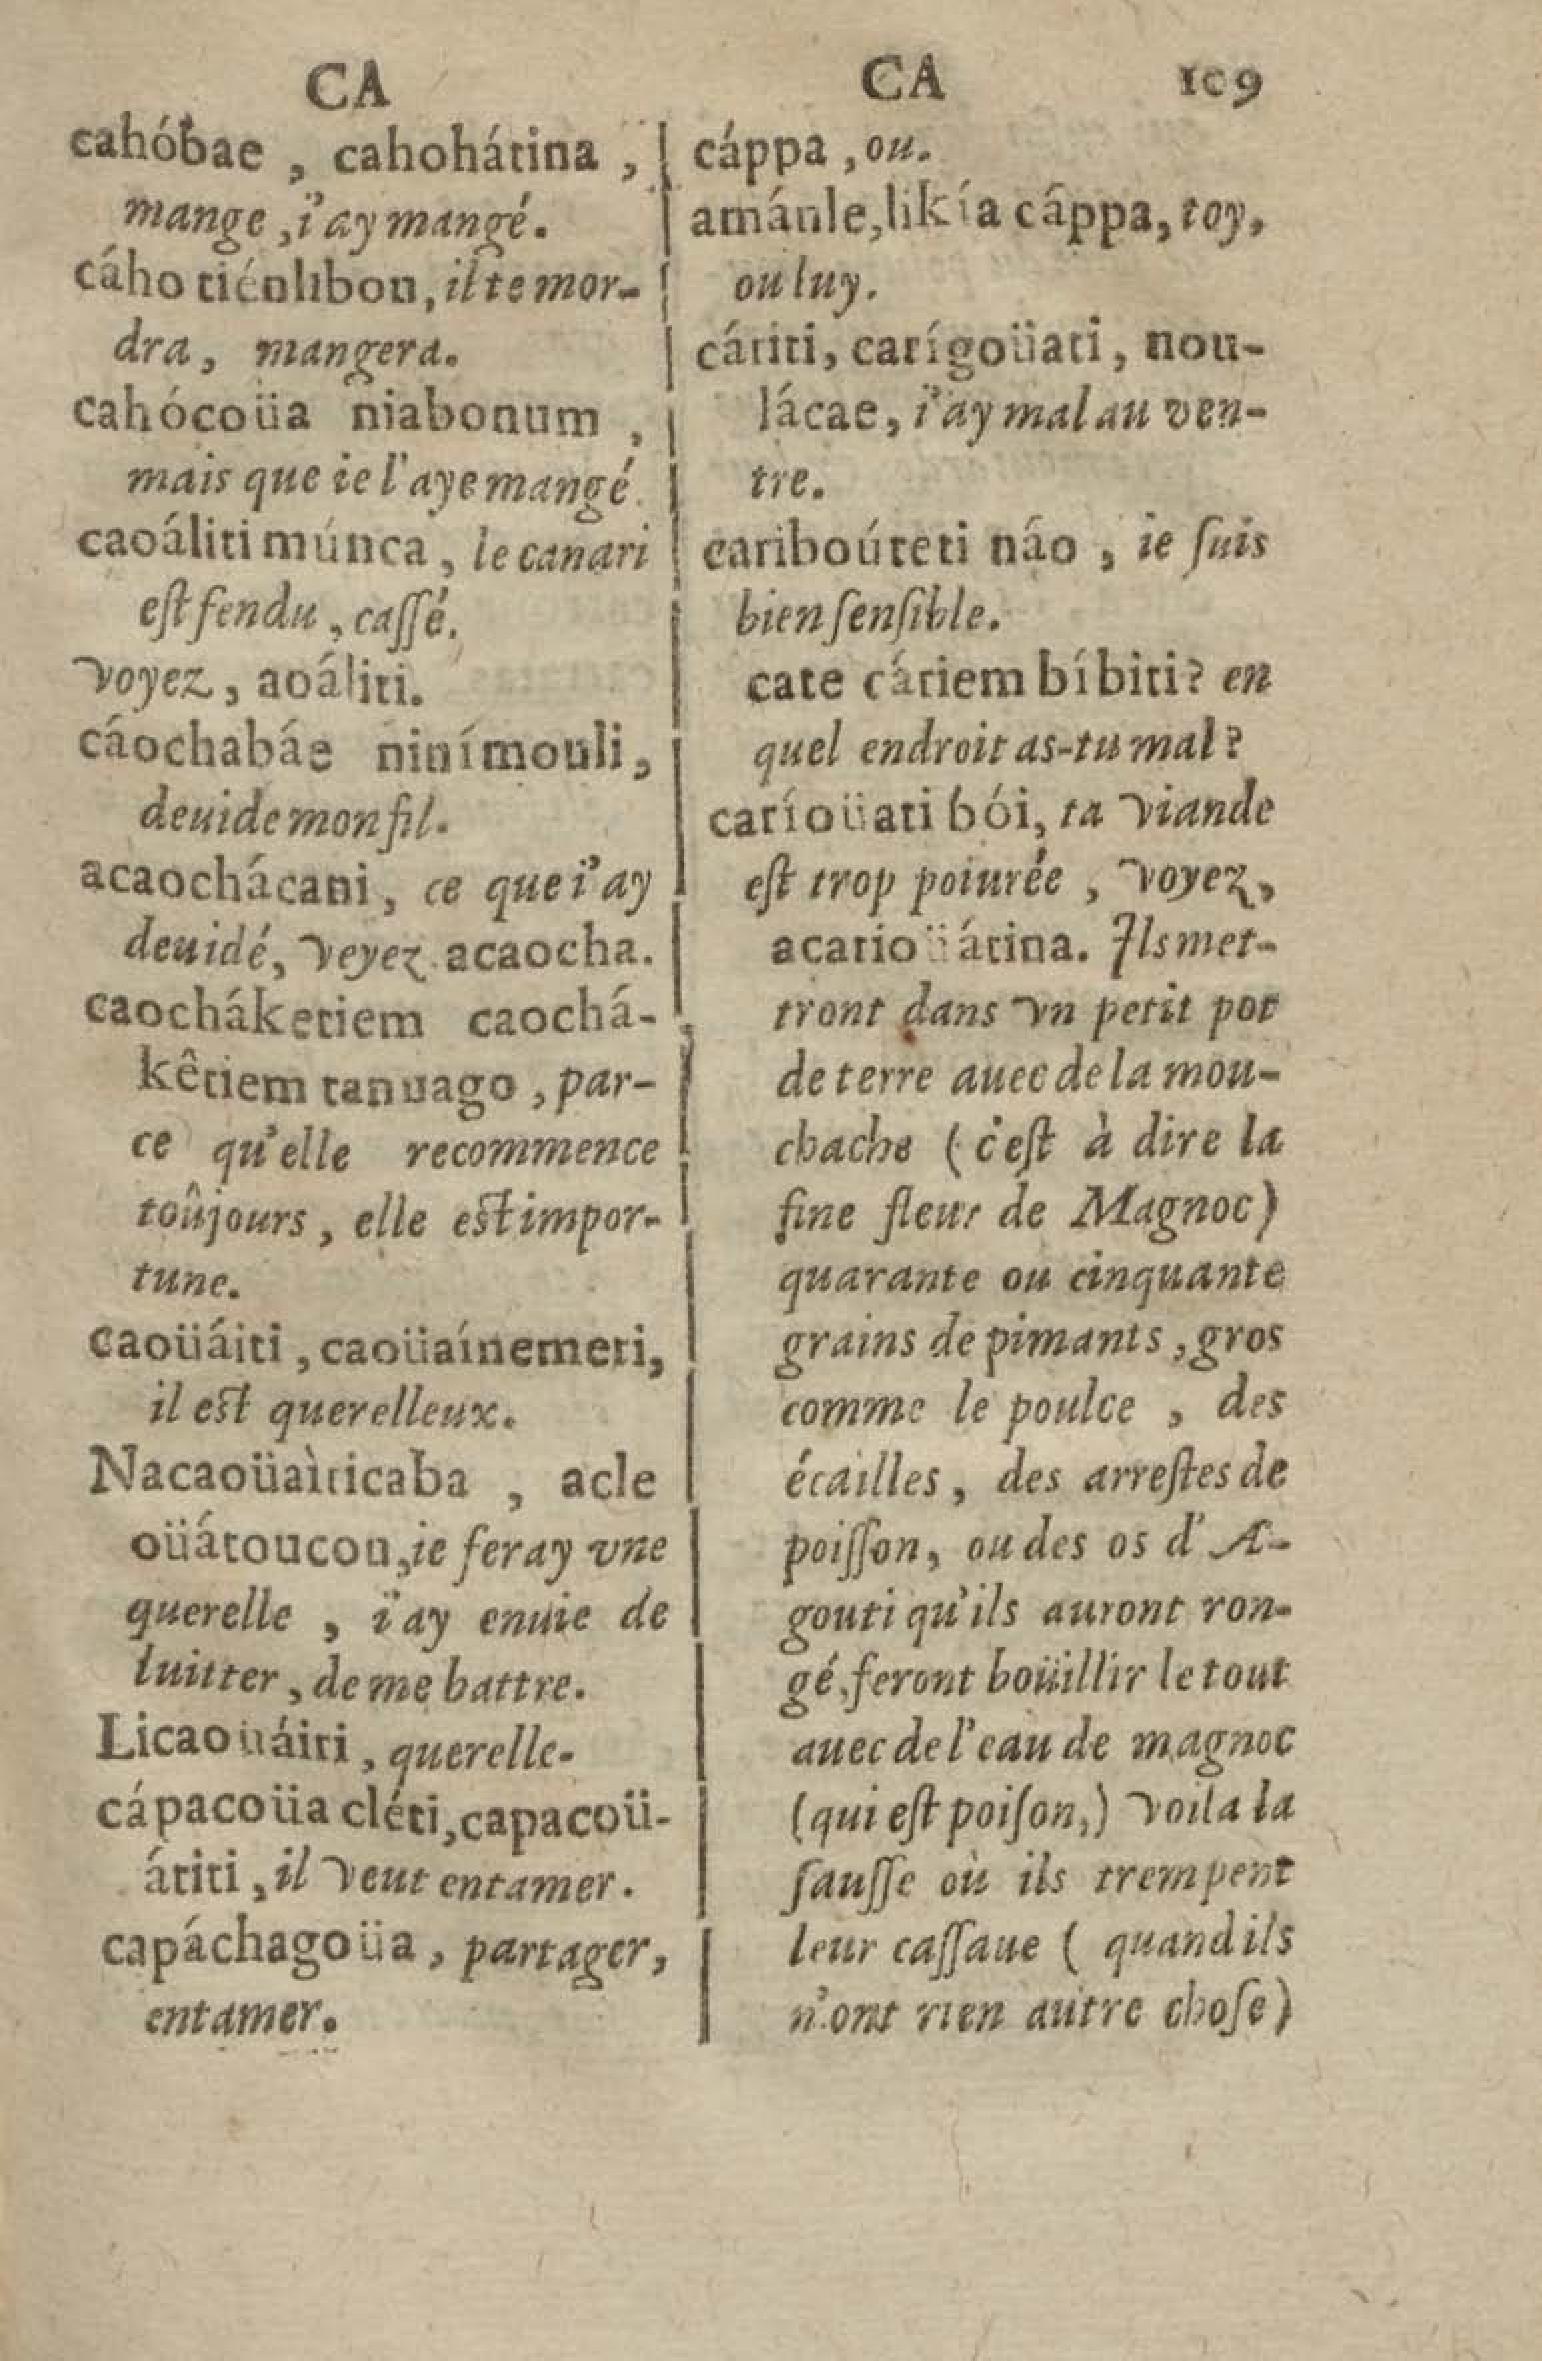 CA
cahóbae, cahohátina,
mange, i'ay mangé.
cáho tiénlibou, il te mor-
dra, mangera.
cahócoüa niabonum,
mais que ie l'aye mangé.
caoáliti múnca, le canari
est fendu, cassé.
voyez, aoáliti.
cáochabáe ninímouli,
deuide mon fil.
acaochácani, ce que i'ay
deuidé, veyez acaocha.
caocháketiem caochá-
kêtiem tanuago, par-
ce qu'elle recommence
toûjours, elle est impor-
tune.
caoüáiti, caoüaínemeti,
il est querelleux.
Nacaoüaìticaba, acle
oüátoucou, ie feray vne
querelle, i'ay enuie de
luitter, de me battre.
Licaoüáiti, querelle.
cápacoüa cléti, capacoü-
átiti, il veut entamer.
capáchagoüa, partager,
entamer.
CA 109
cáppa, ou.
amánle, likía câppa, toy,
ou luy.
cáriti, carígoüati, nou-
lácae, i'ay mal au ven-
tre.
cariboúteti náo, ie ſuis
bien ſenſible.
cate cátiem bíbiti? en
quel endroit as-tu mal?
catíoüati bói, ta viande
eſt trop poiurée, voyez,
acatioüátina. Ils met-
tront dans vn petit pot
de terre auec de la mou-
chache (c'eſt à dire la
fine fleur de Magnoc)
quarante ou cinquante
grains de pimants, gros
comme le poulce, des
écailles, des arreſtes de
poiſſon, ou des os d'A-
gouti qu'ils auront ron-
gé, feront boüillir le tout
auec de l'eau de magnoc
(qui eſt poiſon,) voila la
ſauſſe où ils trempent
leur caſſaue (quand ils
n'ont rien autre choſe)